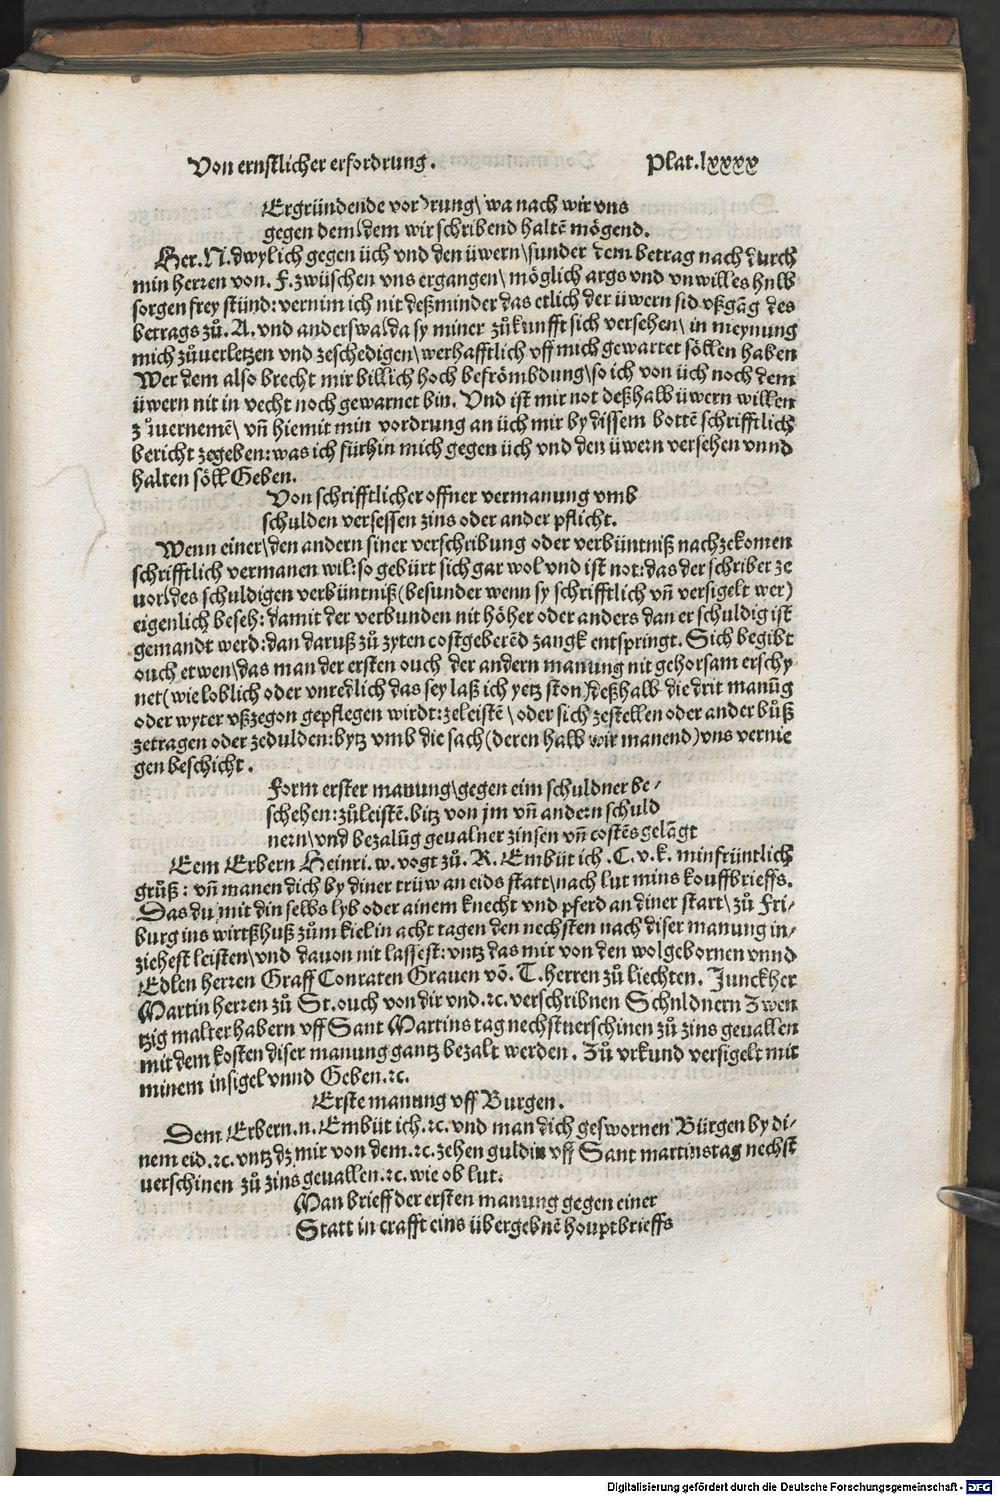 Von ernstlicher erfordrung. Plat.lxxxx
Ergründende vordrung\ wa nach wir vns
gegen dem\dem wir schribend haltē mögend.
Her.N.dwylich gegen üch vnd den üwern\sunder dem betrag nach durch
min herren von. F.zwüschen vns ergangen\ möglich args vnd vnwilles halb
sorgen frey stünd:vernim ich nit deßminder das etlich der üwern sid vßgāg des
betrags zů. A. vnd anderswa\da sy miner zůkunfft sich versehen\ in meynung
mich zůuerletzen vnd zeschedigen\werhafftlich vff mich gewartet söllen haben
Wer dem also brecht mir billich hoch befrömbdung\so ich von üch noch dem
üwern nit in vecht noch gewarnet bin. Vnd ist mir not deßhalb üwern willen
zůuernemē\ vñ hiemit min vordrung an üch mir by dissem bottē schrifftlich
bericht zegeben:was ich fürhin mich gegen üch vnd den üwern versehen vnnd
halten söll Geben.
Von schrifftlicher offner vermanung vmb
schulden versessen zins oder ander pflicht.
Wenn einer\den andern siner verschribung oder verbüntniß nachzekomen
schrifftlich vermanen wil:so gebürt sich gar wol vnd ist not:das der schriber ze
uor\des schuldigen verbüntniß(besunder wenn sy schrifftlich vñ versigelt wer)
eigenlich beseh:damit der verbunden nit höher oder anders dan er schuldig ist
gemandt werd:dan daruß zů zyten costgeberēd zangk entspringt. Sich begibt
ouch etwen\das man der ersten ouch der andern manung nit gehorsam erschy
net(wie loblich oder vnredlich das sey laß ich yetz ston)deßhalb die drit manūg
oder wyter vßzegon gepflegen wirdt:zeleistē\oder sich zestellen oder ander bůß
zetragen oder zedulden:bytz vmb die sach(deren halb wir manend)vns vernie
gen beschicht.
Form erster manung\gegen eim schuldner be-
schehen:zůleistē.bitz von jm vñ andern schuld
nern\vnd bezalūg geualner zinsen vñ costēs gelāgt
Eem Erbern Heinri.w.vogt zů. R. Embüt ich .C.v.k. min früntlich
grůß: vñ manen dich by diner trüw an eids statt\nach lut mins kouffbrieffs.
Das du mit din selbs lyb oder ainem knecht vnd pferd an diner start\ zů Fri-
burg ins wirtßhuß zům kiel in acht tagen den nechsten nach diser manung in-
ziehest leisten\vnd dauon nit lassest:vntz das mir von den wolgebornen vnnd
Edlen herzen Graff Conraten Grauen vō. T.herren zů liechten. Junckher
Martin herren zů St.ouch von dir vnd.ꝛc.verschribnen Schnldnern Zwen
tzig malter habern vff Sant Martins tag nechstuerschinen zů zins geuallen
mit dem kosten diser manung gantz bezalt werden. Zů vrkund versigelt mit
minem insigel vnnd Geben.ꝛc.
Erste manung vff Burgen.
Dem Erbern.n.Embüt ich.ꝛc.vnd man dich geswornen Bürgen by di-
nem eid.ꝛc.vntz dz mir von dem.ꝛc.zehen guldin vff Sant martinstag nechst
uerschinen zů zins geuallen.ꝛc.wie ob lut.
Man brieff der ersten manung gegen einer
Statt in crafft eins übergebnē houptbrieffs
Digitalisierung gefördert durch die Deutsche Forschungsgemeinschaft - DFG